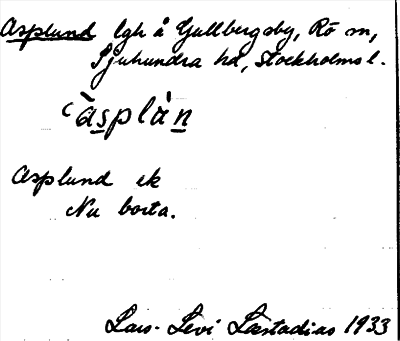 Asplund lgh å Gullbergsby, Rö sn,
Sjuhundra hd, Stockholms l.
`àsplàn
Asplund ek
Nu borta.
Lars-Levi Læstadius 1933